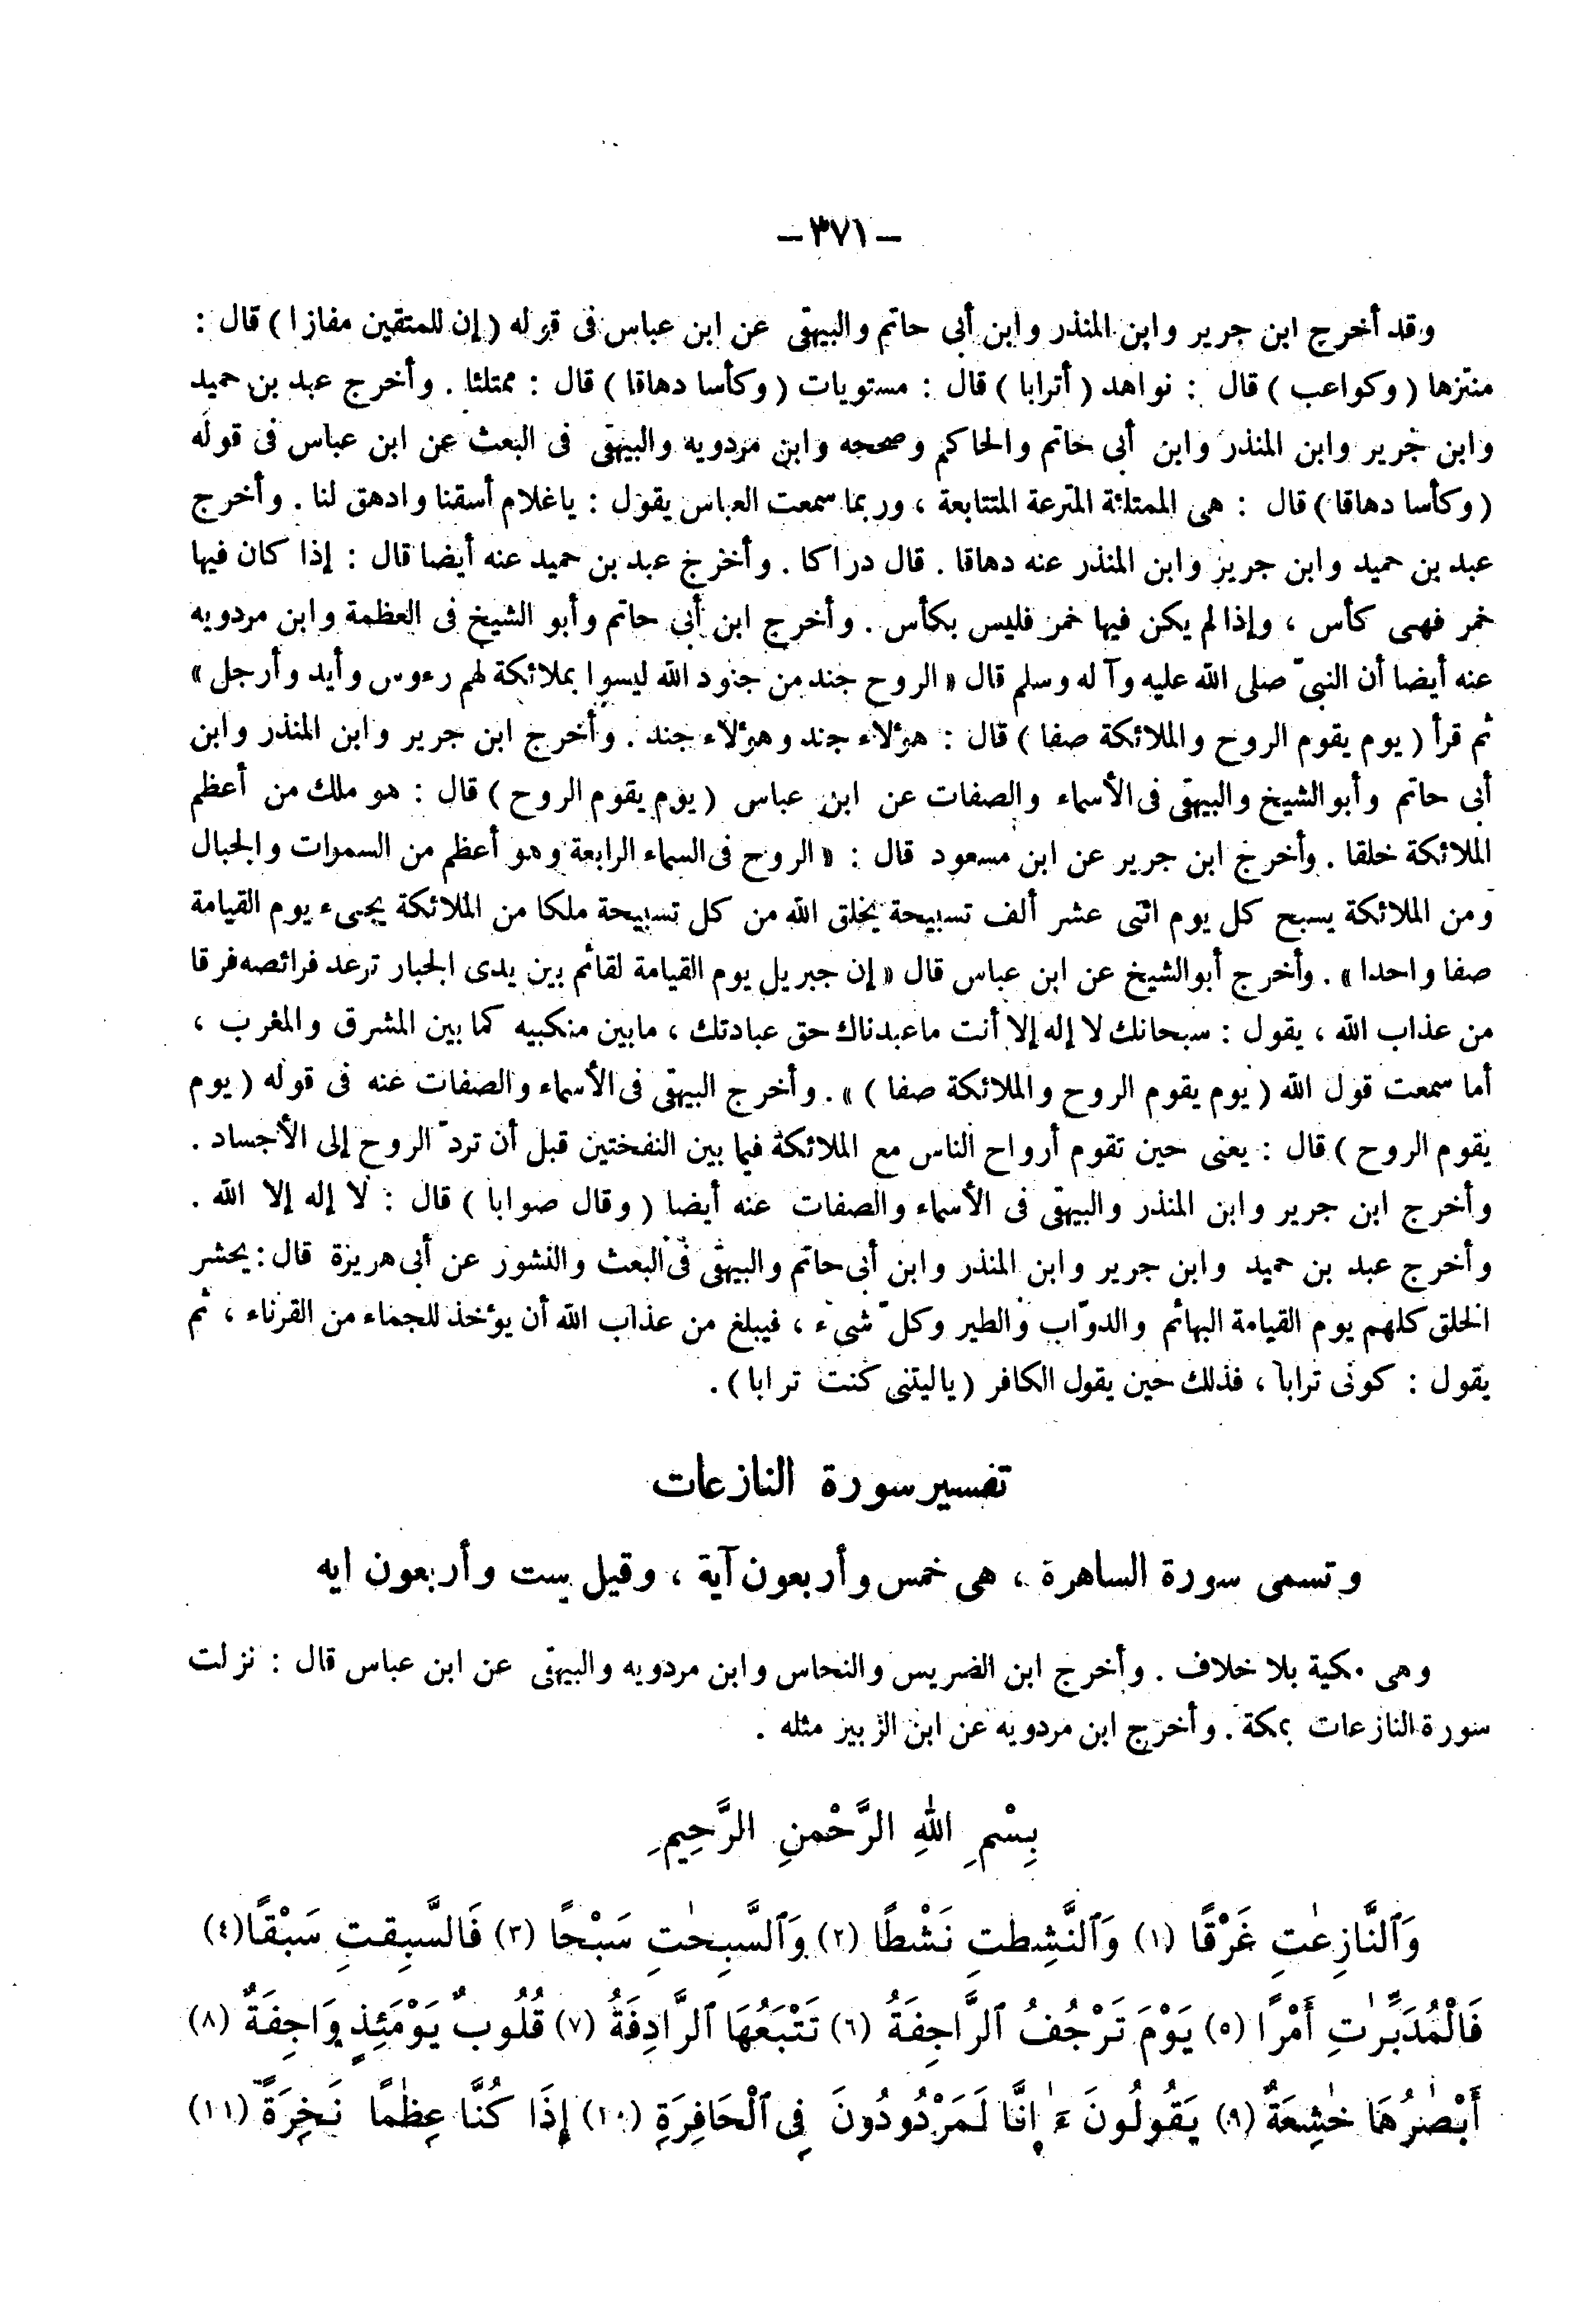 — ٣٧١ —
وقد أخرج ابن جرير وابن المنذر وابن أبى حاتم والبيهقى عن ابن عباس فى قوله ( إن للمتقين مفازا ) قال :
منتزها ( وكواعب ) قال : نواهد ( أترابا ) قال : مستويات ( وكأسا دهاقا ) قال : ممتلئا . وأخرج عبد بن حميد
وابن جرير وابن المنذر وابن أبى حاتم والحاكم وصححه وابن مردويه والبيهقى فى البعث عن ابن عباس فى قوله
( وكأسا دهاقا ) قال : هى الممتلئة المترعة المتتابعة ، وربما سمعت العباس يقول : ياغلام أسقنا وادهق لنا . وأخرج
عبد بن حميد وابن جرير وابن المنذر عنه دهاقا . قال دراكا . وأخرج عبد بن حميد عنه أيضا قال : إذا كان فيها
خمر فهى كأس ، وإذا لم يكن فيها خمر فليس بكأس . وأخرج ابن أبى حاتم وأبو الشيخ فى العظمة وابن مردويه
عنه أيضا أن النبىّ صلى الله عليه وآله وسلم قال « الروح جند من جنود الله ليسوا بملائكة لهم رءوس وأيد وأرجل »
ثم قرأ ( يوم يقوم الروح والملائكة صفا ) قال : هؤلاء جند وهؤلاء جند . وأخرج ابن جرير وابن المنذر وابن
أبى حاتم وأبو الشيخ والبيهقى فى الأسماء والصفات عن ابن عباس ( يوم يقوم الروح ) قال : هو ملك من أعظم
الملائكة خلقا . وأخرج ابن جرير عن ابن مسعود قال : « الروح فى السماء الرابعة وهو أعظم من السموات والجبال
ومن الملائكة يسبح كل يوم اثنى عشر ألف تسبيحة يخلق الله من كل تسبيحة ملكا من الملائكة يجىء يوم القيامة
صفا واحدا » . وأخرج أبو الشيخ عن ابن عباس قال « إن جبريل يوم القيامة لقائم بين يدى الجبار ترعد فرائصه فرقا
من عذاب الله ، يقول : سبحانك لا إله إلا أنت ماعبدناك حق عبادتك ، مابين منكبيه كما بين المشرق والمغرب ،
أما سمعت قول الله ( يوم يقوم الروح والملائكة صفا ) » . وأخرج البيهقى فى الأسماء والصفات عنه فى قوله ( يوم
يقوم الروح ) قال : يعنى حين تقوم أرواح الناس مع الملائكة فيما بين النفختين قبل أن تردّ الروح إلى الأجساد .
وأخرج ابن جرير وابن المنذر والبيهقى فى الأسماء والصفات عنه أيضا ( وقال صوابا ) قال : لا إله إلا الله .
وأخرج عبد بن حميد وابن جرير وابن المنذر وابن أبى حاتم والبيهقى فى البعث والنشور عن أبى هريرة قال : يحشر
الخلق كلهم يوم القيامة البهائم والدوّاب والطير وكلّ شىء ، فيبلغ من عذاب الله أن يؤخذ للجماء من القرناء ، ثم
يقول : كونى ترابا ، فذلك حين يقول الكافر ( ياليتنى كنت ترابا ) .
تفسير سورة النازعات
وتسمى سورة الساهرة ، هى خمس وأربعون آية ، وقيل ست وأربعون ايه
وهى مكية بلا خلاف . وأخرج ابن الضريس والنحاس وابن مردويه والبيهقى عن ابن عباس قال : نزلت
سورة النازعات بمكة . وأخرج ابن مردويه عن ابن الزبير مثله .
بِسْمِ اللهِ الرَّحْمنِ الرَّحِيمِ
وَٱلنَّازِعٰتِ غَرْقًا (١) وَٱلنَّشِطتِ نَشْطًا (٢) وَٱلسَّبِحٰتِ سَبْحًا (٣) فَالسَّبِقتِ سَبْقًا (٤)
فَالْمُدَبِّرٰتِ أَمْرًا (٥) يَوْمَ تَرْجُفُ ٱلرَّاجِفَةُ (٦) تَتْبَعُهَا ٱلرَّادِفَةُ (٧) قُلُوبٌ يَوْمَئِذٍ وَاجِفَةٌ (٨)
أَبْصٰرُهَا خٰشِعَةٌ (٩) يَقُولُونَ ءَإِنَّا لَمَرْدُودُونَ فِى ٱلْحَافِرَةِ (١٠) إِذَا كُنَّا عِظٰمًا نَخِرَةً (١١)